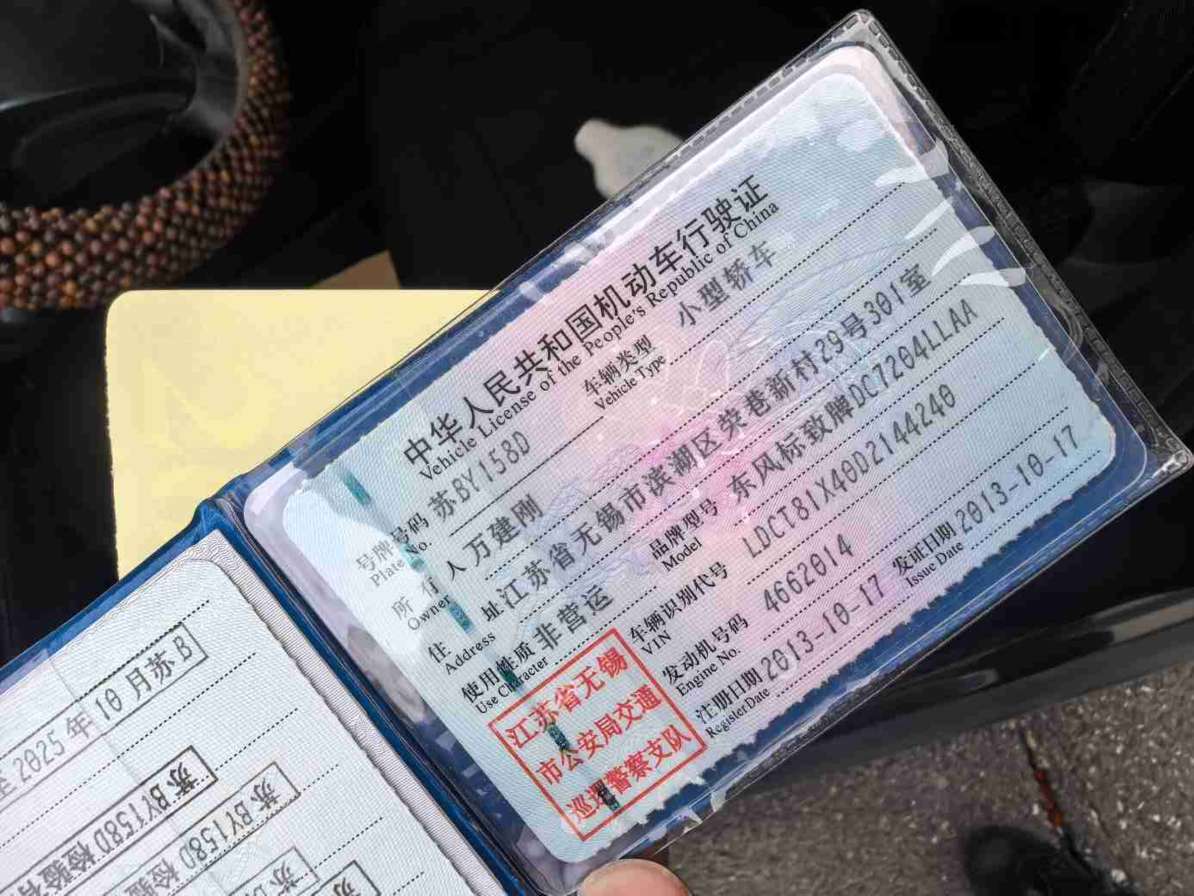 中华人民共和国机动车行驶证
Vehicle License of the People's Republic of China
号牌号码 苏BY158D 车辆类型 小型轿车
Plate No. Vehicle Type
所有人 万建刚
Owner
住址 江苏省无锡市滨湖区荣巷新村29号301室
Address
使用性质 非营运 品牌型号 东风标致牌DC7204LLAA
Use Character Model
车辆识别代号 LDCT81X40D2144240
VIN
发动机号码 4662014
Engine No.
注册日期 2013-10-17 发证日期 2013-10-17
Register Date Issue Date
江苏省无锡
市公安局交通
巡逻警察支队
至2025年10月苏B
苏BY158D检验有
苏BY158D检验
苏
苏